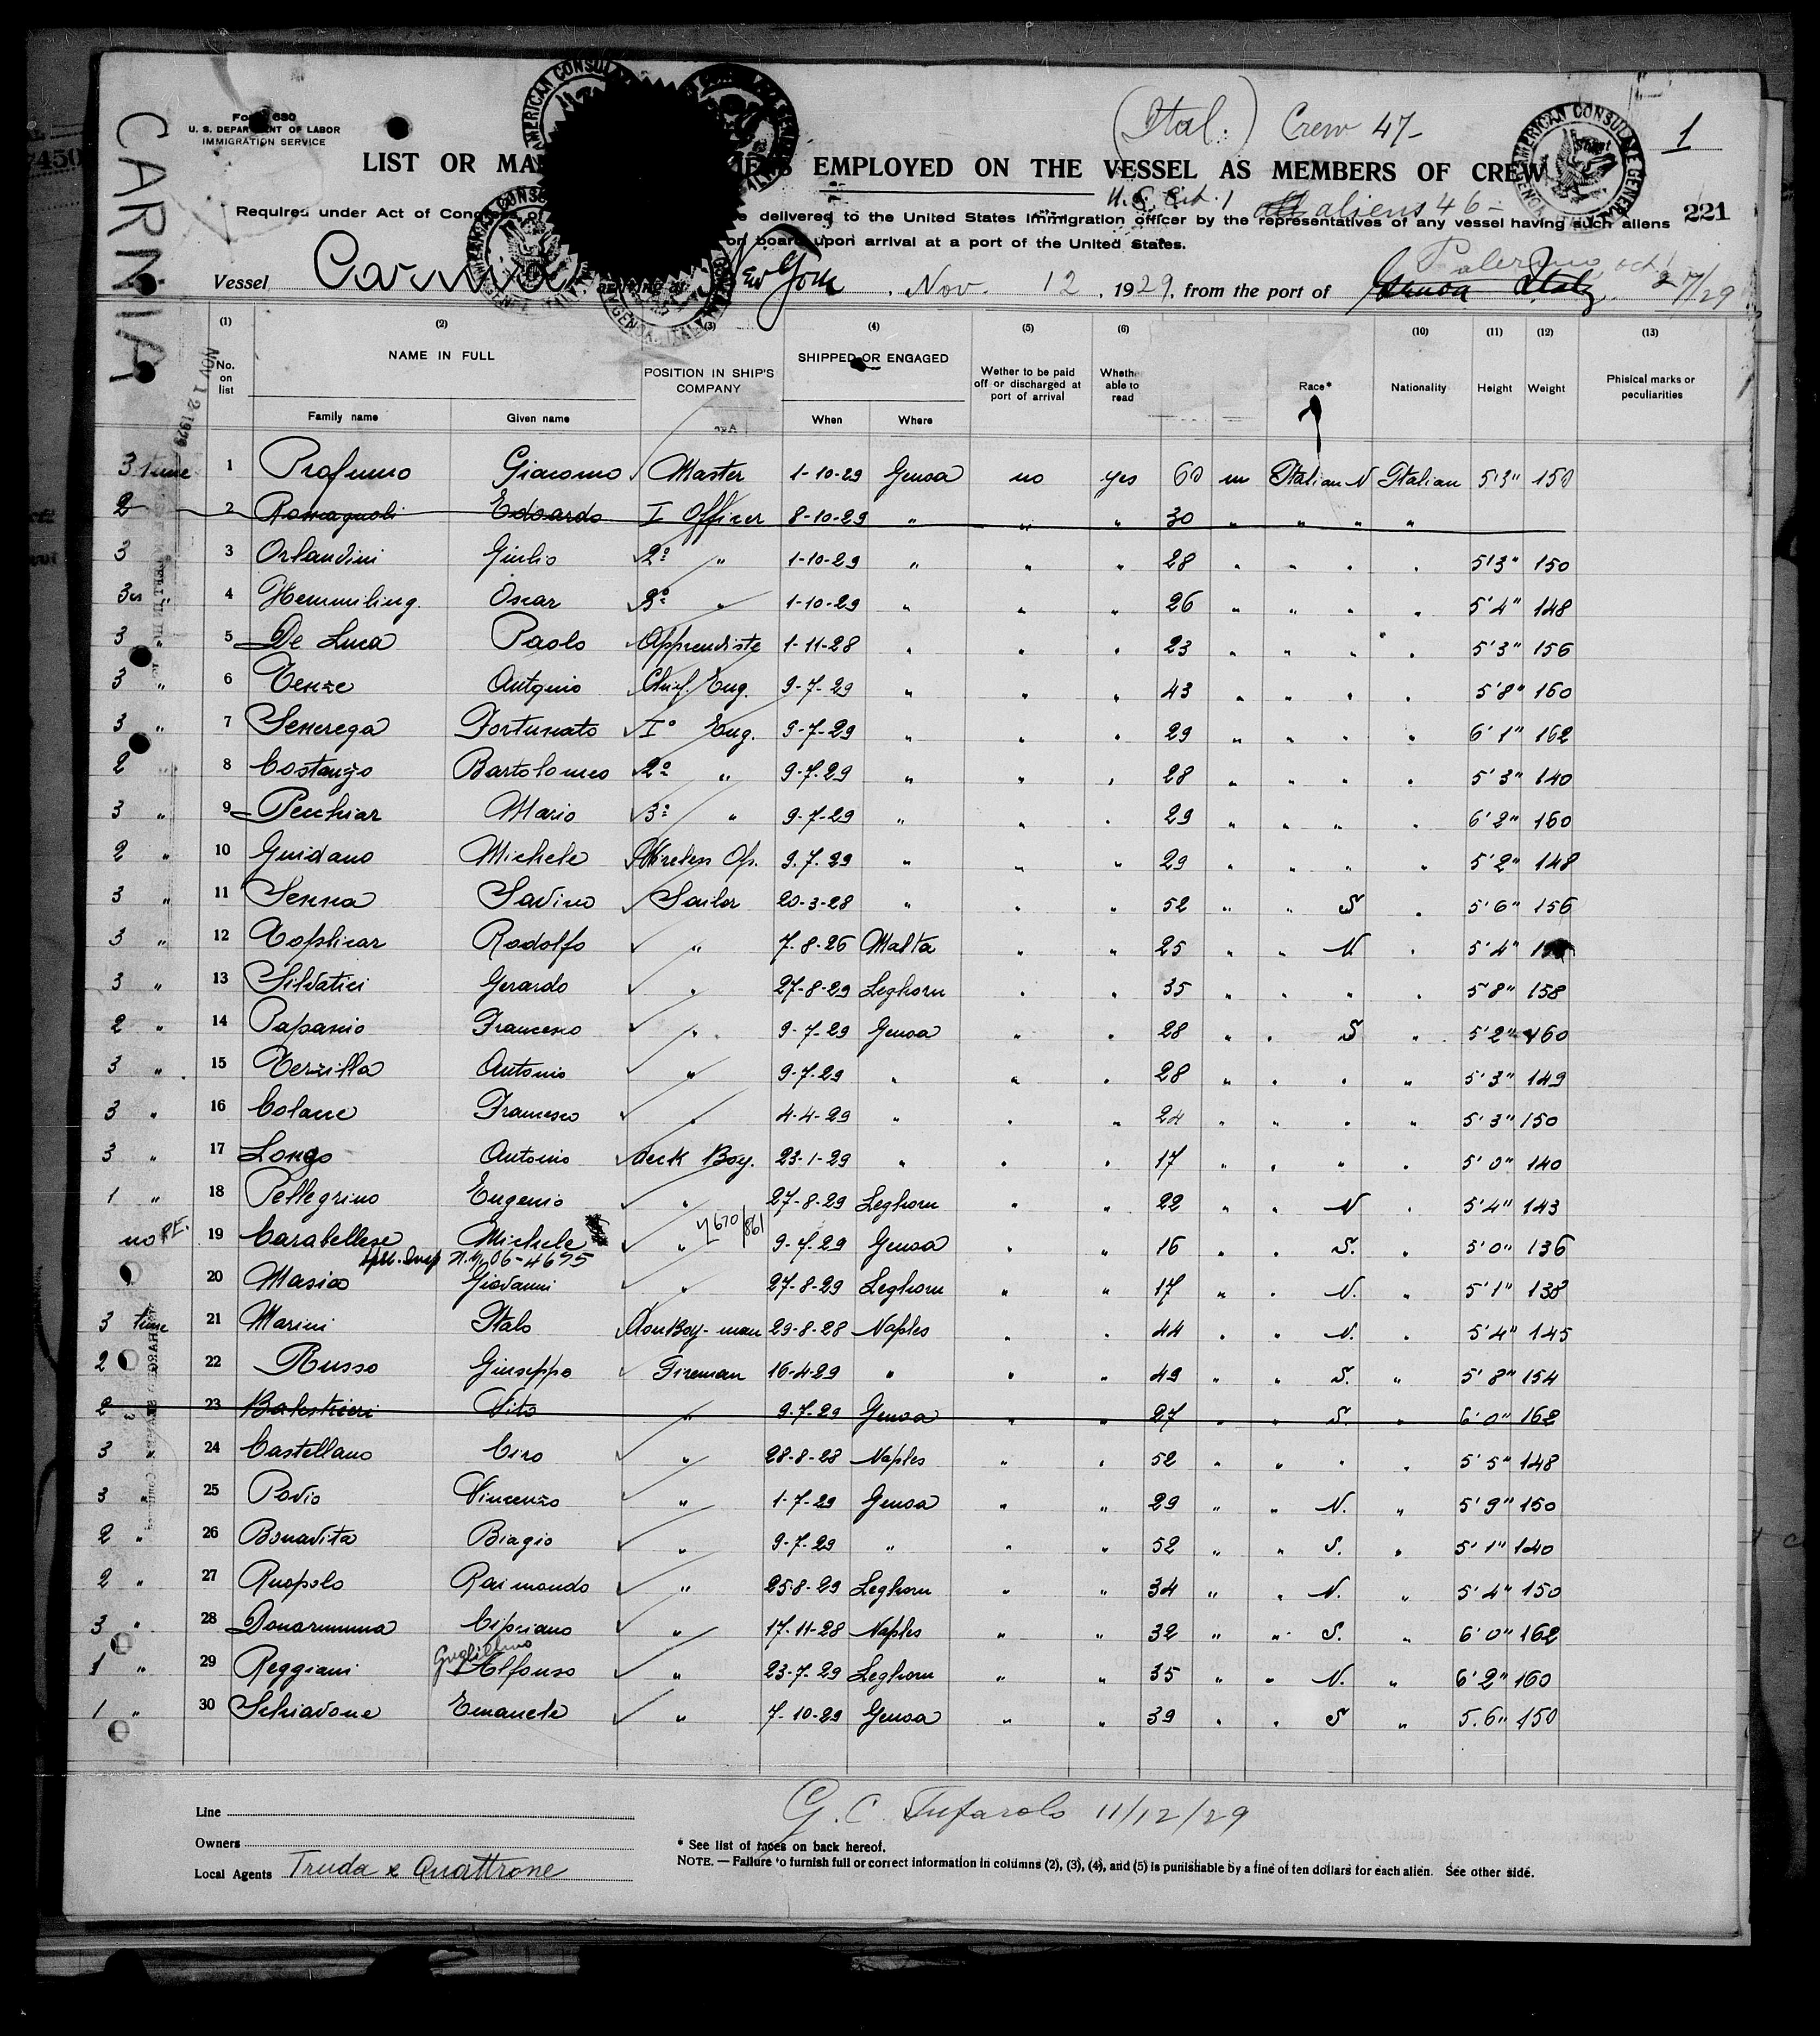 CARNIA
NOV 12 1929
Form 680
U. S. DEPARTMENT OF LABOR
IMMIGRATION SERVICE
(Ital.) Crew 47-
1
AMERICAN CONSULATE GENERAL GENOA, ITALY
LIST OR EMPLOYED ON THE VESSEL AS MEMBERS OF CREW
U.S. Cit. 1 aliens 46-
Required under Act of Congress of delivered to the United States immigration officer by the representatives of any vessel having such aliens 221
on board upon arrival at a port of the United States.
Palermo, oct
Vessel Carnia New York, Nov. 12, 1929, from the port of Genoa Italy 27/29
(1) (2) (3) (4) (5) (6) (10) (11) (12) (13)
No. on list NAME IN FULL POSITION IN SHIP'S COMPANY SHIPPED OR ENGAGED Wether to be paid off or discharged at port of arrival Whether able to read Race* Nationality Height Weight Phisical marks or peculiarities
Family name Given name When Where
3 time 1 Profumo Giacomo Master 1-10-29 Genoa no yes 60 m Italian N Italian 5'3" 150
2 2 Romagnoli Edoardo I Officer 8-10-29 " " " 30 " " " "
3 3 Orlandini Giulio 2º " 1-10-29 " " " 28 " " " " 5'3" 150
3 " 4 Hemmiling Oscar 3º " 1-10-29 " " " 26 " " " " 5'4" 148
3 " 5 De Luca Paolo Apprendiste 1-11-28 " " " 23 " " " " 5'3" 156
3 " 6 Tenze Antonio Chief. Eng. 9-7-29 " " " 43 " " " " 5'8" 160
3 " 7 Senerega Fortunato Iº Eng. 9-7-29 " " " 29 " " " " 6'1" 162
2 8 Costanzo Bartolomeo 2º " 9-7-29 " " " 28 " " " " 5'3" 140
3 " 9 Pecchiar Mario 3º " 9-7-29 " " " 29 " " " " 6'2" 160
2 " 10 Guidano Michele Wireless Op. 9.7.29 " " " 29 " " " " 5'2" 148
3 " 11 Senna Savino Sailor 20-3-28 " " " 52 " " S " 5'6" 156
3 " 12 Coplicar Rodolfo " 7-8-26 Malta " " 25 " " N " 5'4"
3 " 13 Silvatici Gerardo " 27-8-29 Leghorn " " 35 " " " " 5'8" 158
2 " 14 Papanio Francesco " 9-7-29 Genoa " " 28 " " S " 5'2" 160
3 " 15 Terzilla Antonio " 9-7-29 " " " 28 " " " " 5'3" 149
3 " 16 Colane Francesco " 4-4-29 " " " 24 " " " " 5'3" 150
3 " 17 Longo Antonio deck Boy. 23-1-29 " " " 17 " " " " 5'0" 140
1 " 18 Pellegrino Eugenio " 27-8-29 Leghorn " " 22 " " N " 5'4" 143
no P.E. 19 Carabellese Michele " 4670/861 9-7-29 Genoa " " 16 " " S. " 5'0" 136
20 Masia Giovanni " 27-8-29 Leghorn " " 17 " " N. " 5'1" 138
3 time 21 Marini Italo DonBoy-man 29-8-28 Naples " " 44 " " N. " 5'4" 145
2 22 Russo Giuseppe Fireman 16-4-29 " " " 49 " " S. " 5'8" 154
2 23 Balestrieri Vito " 9.7.29 Genoa " " 27 " " S. " 6'0" 162
3 24 Castellano Ciro " 28-8-28 Naples " " 52 " " " " 5'5" 148
3 " 25 Povio Vincenzo " 1-7-29 Genoa " " 29 " " N. " 5'9" 150
2 " 26 Bonavita Biagio " 9-7-29 " " " 52 " " S. " 5'1" 140
2 " 27 Ruopolo Raimondo " 25-8-29 Leghorn " " 34 " " N. " 5'4" 150
3 " 28 Donarumma Cipriano " 17-11-28 Naples " " 32 " " S. " 6'0" 162
Guglielmo
1 " 29 Reggiani Alfonso " 23-7-29 Leghorn " " 35 " " N. " 6'2" 160
1 " 30 Schiavone Emanuele " 7-10-29 Genoa " " 39 " " S " 5.6" 150
Line
G. C. Tufarolo 11/12/29
Owners
* See list of races on back hereof.
Local Agents Truda & Quattrone
NOTE. — Failure to furnish full or correct information in columns (2), (3), (4), and (5) is punishable by a fine of ten dollars for each alien. See other side.